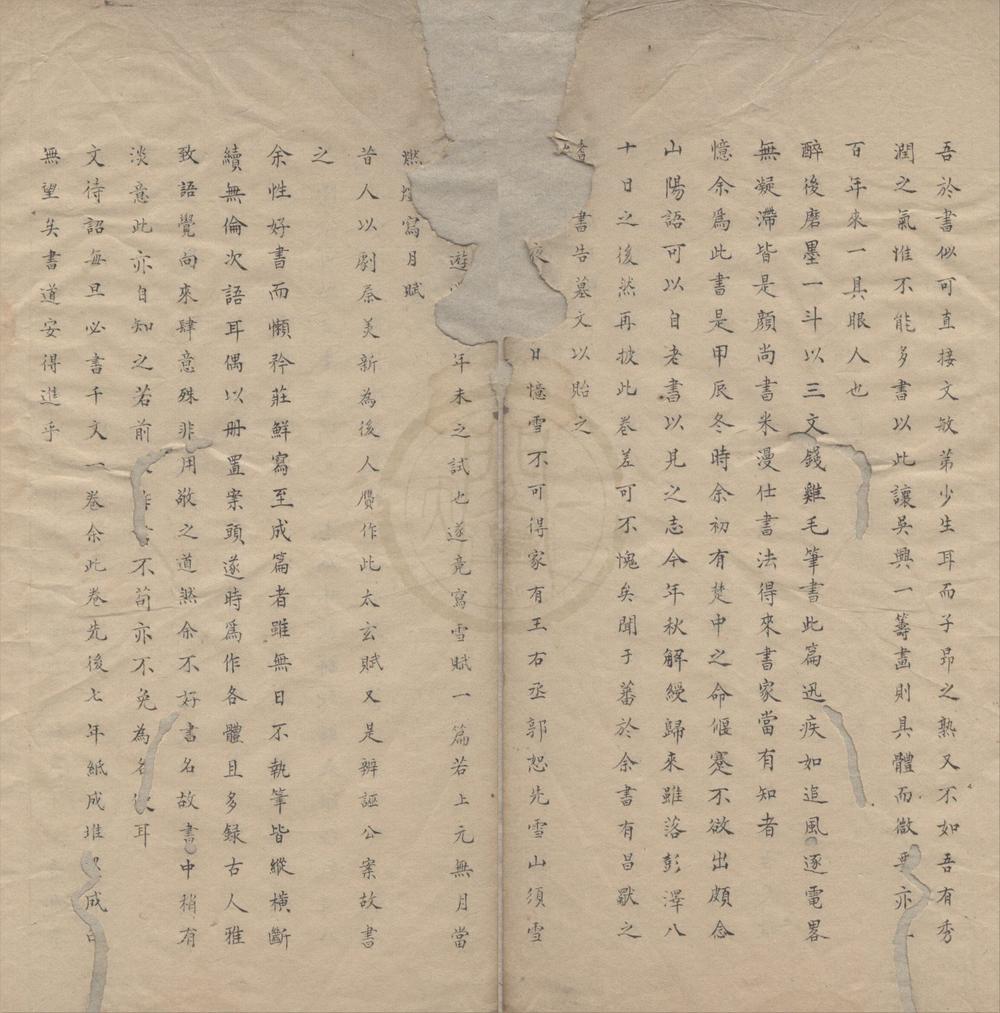 吾於書似可直接文敏第少生耳而子昂之熟又不如吾有秀
潤之氣惟不能多書以此讓吳興一籌畫則具體而微要亦一
百年來一具眼人也
醉後磨墨一斗以三文錢雞毛筆書此篇迅疾如追風逐電畧
無凝滯皆是顏尚書米漫仕書法得來書家當有知者
憶余爲此書是甲辰冬時余初有楚中之命偃蹇不欲出頗念
山陽語可以自老書以見之志今年秋解綬歸來雖落彭澤八
十日之後然再披此卷差可不愧矣聞子蕃於余書有昌歜之
書告墓文以貽之
夜 日憶雪不可得家有王右丞郭恕先雪山須雪
遊 年未之試也遂竟寫雪賦一篇若上元無月當
燃燈寫月賦
昔人以劇秦美新為後人贋作此太玄賦又是辨誣公案故書
之
余性好書而懶矜莊鮮寫至成篇者雖無日不執筆皆縱橫斷
續無倫次語耳偶以册置案頭遂時爲作各體且多録古人雅
致語覺向來肆意殊非用敬之道然余不好書名故書中稍有
淡意此亦自知之若前 作者不茍亦不免為名 耳
文待詔每旦必書千文一卷余此卷先後七年紙成堆 成
無望矣書道安得進乎